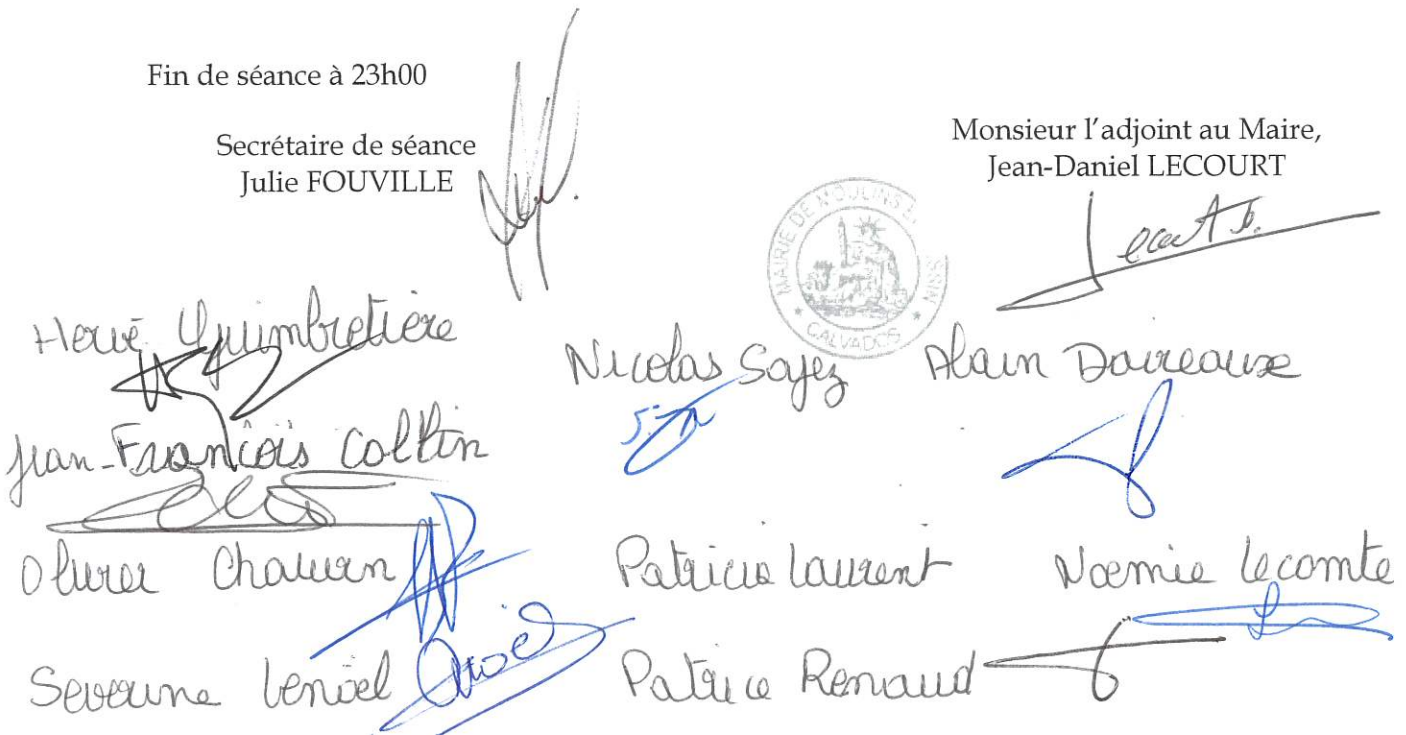 Fin de séance à 23h00
Secrétaire de séance
Julie FOUVILLE
Monsieur l'adjoint au Maire,
Jean-Daniel LECOURT
MAIRIE DE MOULINS
CALVADOS
Hervé Guimbretière
Nicolas Sajez
Alain Daireaux
Jean-François Collin
Olivier Chauvin
Patricia Laurent
Noemie Lecomte
Severine Lenoël
Patrice Renaud